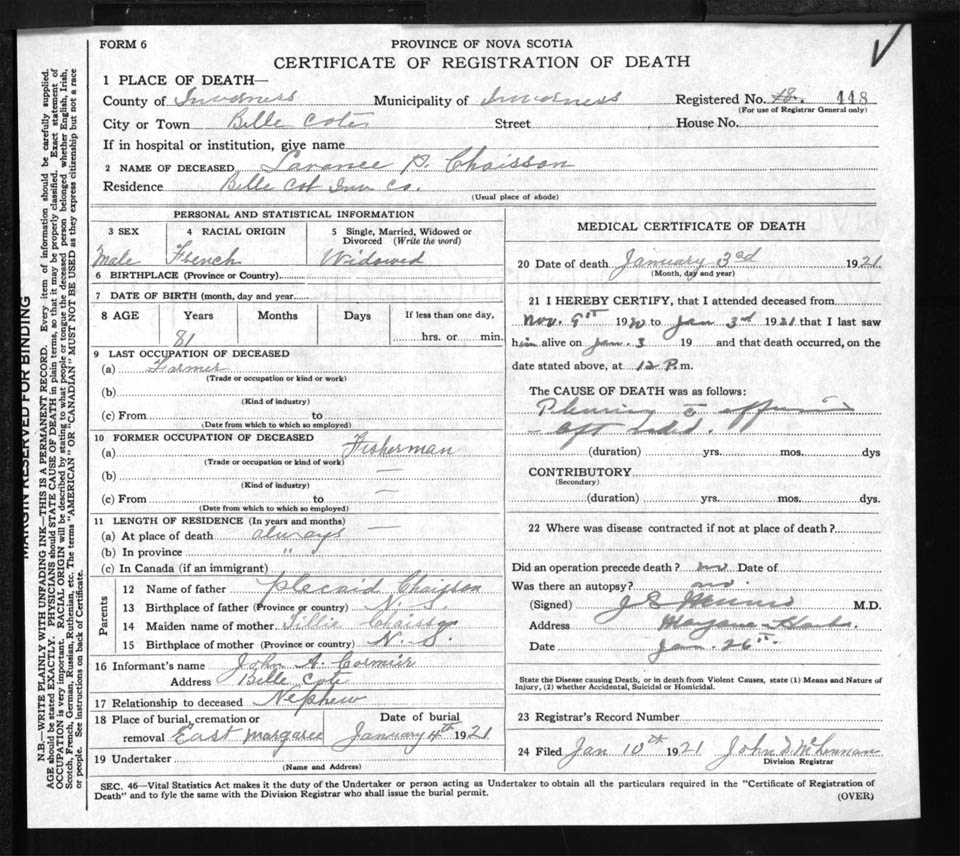 FORM 6
PROVINCE OF NOVA SCOTIA
CERTIFICATE OF REGISTRATION OF DEATH
1 PLACE OF DEATH—
County of Inverness Municipality of Inverness Registered No. 18. 448
(For use of Registrar General only)
City or Town Belle Cote Street House No.
If in hospital or institution, give name
2 NAME OF DECEASED Larance P. Chaisson
Residence Belle Cot Inv Co.
(Usual place of abode)
PERSONAL AND STATISTICAL INFORMATION
3 SEX 4 RACIAL ORIGIN 5 Single, Married, Widowed or Divorced (Write the word)
Male French Widowed
6 BIRTHPLACE (Province or Country)
7 DATE OF BIRTH (month, day and year)
8 AGE Years Months Days If less than one day,
81 hrs. or min.
9 LAST OCCUPATION OF DECEASED
(a) Farmer
(Trade or occupation or kind or work)
(b)
(Kind of industry)
(c) From to
(Date from which to which so employed)
10 FORMER OCCUPATION OF DECEASED
(a) Fisherman
(Trade or occupation or kind of work)
(b) —
(Kind of industry)
(c) From to —
(Date from which to which so employed)
11 LENGTH OF RESIDENCE (In years and months) —
(a) At place of death always
(b) In province "
(c) In Canada (if an immigrant)
Parents
12 Name of father Placaid Chaisson
13 Birthplace of father (Province or country) N. S.
14 Maiden name of mother Tillie Chaisson
15 Birthplace of mother (Province or country) N. S.
16 Informant's name John A. Cormier
Address Belle Cote
17 Relationship to deceased Nephew
18 Place of burial, cremation or Date of burial
removal East Margaree January 4th 1921
19 Undertaker
(Name and Address)
MEDICAL CERTIFICATE OF DEATH
20 Date of death January 3rd 1921
(Month, day and year)
21 I HEREBY CERTIFY, that I attended deceased from
Nov. 9th 1920 to Jan 3rd 1921 that I last saw
him alive on Jan. 3 19 and that death occurred, on the
date stated above, at 12 P.m.
The CAUSE OF DEATH was as follows:
Pleurisy c̄ effusion
– left sided.
(duration) yrs. mos. dys
CONTRIBUTORY
(Secondary)
(duration) yrs. mos. dys.
22 Where was disease contracted if not at place of death?
Did an operation precede death? no Date of
Was there an autopsy? no.
(Signed) J M.D.
Address
Date Jan. 26th
State the Disease causing Death, or in death from Violent Causes, state (1) Means and Nature of
Injury, (2) whether Accidental, Suicidal or Homicidal.
23 Registrar's Record Number
24 Filed Jan 10th 1921 John D. McLennan
Division Registrar
SEC. 46—Vital Statistics Act makes it the duty of the Undertaker or person acting as Undertaker to obtain all the particulars required in the "Certificate of Registration of
Death" and to fyle the same with the Division Registrar who shall issue the burial permit.
(OVER)
MARGIN RESERVED FOR BINDING
N.B.—WRITE PLAINLY WITH UNFADING INK—THIS IS A PERMANENT RECORD. Every item of information should be carefully supplied.
AGE should be stated EXACTLY. PHYSICIANS should STATE CAUSE OF DEATH in plain terms, so that it may be properly classified. Exact statement of
OCCUPATION is very important. RACIAL ORIGIN will be described by stating to what people or tongue the deceased person belonged, whether English, Irish,
Scotch, French, German, Russian, Ruthenian, etc. The terms "AMERICAN" OR "CANADIAN" MUST NOT BE USED as they express citizenship but not a race
or people. See instructions on back of Certificate.